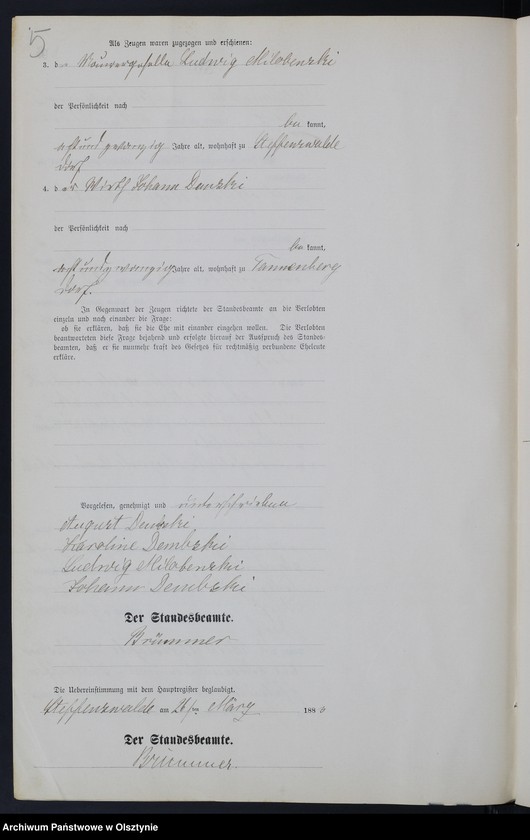 5
Als Zeugen waren zugezogen und erschienen:
3. der Maurergeselle Ludwig Milobenzki
der Persönlichkeit nach
be kannt,
achtundzwanzig Jahre alt, wohnhaft zu Steffenswalde
Dorf
4. der Wirth Johann
der Persönlichkeit nach
be kannt,
achtundzwanzig Jahre alt, wohnhaft zu Tannenberg
Dorf.
In Gegenwart der Zeugen richtete der Standesbeamte an die Verlobten
einzeln und nach einander die Frage:
ob sie erklären, daß sie die Ehe mit einander eingehen wollen. Die Verlobten
beantworteten diese Frage bejahend und erfolgte hierauf der Ausspruch des Standes-
beamten, daß er sie nunmehr kraft des Gesetzes für rechtmäßig verbundene Eheleute
erkläre.
Vorgelesen, genehmigt und unterschrieben
August
Karoline Dembzki
Ludwig Milobenzki
Johann Dembzki
Der Standesbeamte.
Brümmer
Die Uebereinstimmung mit dem Hauptregister beglaubigt.
Steffenswalde am 26ten März 188
Der Standesbeamte.
Brümmer
Archiwum Państwowe w Olsztynie